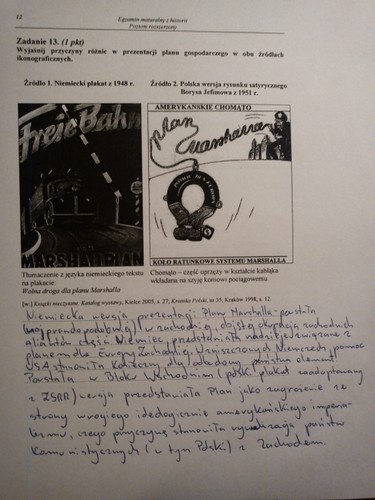 12
Egzamin maturalny z historii
Poziom rozszerzony
Zadanie 13. (1 pkt)
Wyjaśnij przyczyny różnic w prezentacji planu gospodarczego w obu źródłach
ikonograficznych.
Źródło 1. Niemiecki plakat z 1948 r.
Źródło 2. Polska wersja rysunku satyrycznego
Borysa Jefimowa z 1951 r.
Freie Bahn
MARSHALLPLAN
AMERYKAŃSKIE CHOMĄTO
plan
Marshalla
KOŁO RATUNKOWE SYSTEMU MARSHALLA
Tłumaczenie z języka niemieckiego tekstu
na plakacie:
Wolna droga dla planu Marshalla
Chomąto – część uprzęży w kształcie kabłąka
wkładana na szyję koniowi pociągowemu.
[w:] Książki nieczytane. Katalog wystawy, Kielce 2005, s. 27; Kronika Polski, nr 35, Kraków 1998, s. 12.
Niemiecka wersja prezentacji Planu Marshalla powstała
(najprawdopodobniej) w zachodniej, objętej okupacją zachodnich
aliantów części Niemiec, przedstawiała nadzieje związane z
planem dla Europy Zachodniej. W zniszczonych Niemczech, pomoc
USA stanowiła konieczny dla odbudowy państwa element.
Powstała w Bloku Wschodnim (polski plakat zaadaptowany
z ZSRR) wersja przedstawiała Plan jako zagrożenie ze
strony wrogiego ideologicznie amerykańskiego imperia-
lizmu, czego przyczyną stanowiła rywalizacja państw
komunistycznych (w tym Polski) z Zachodem.